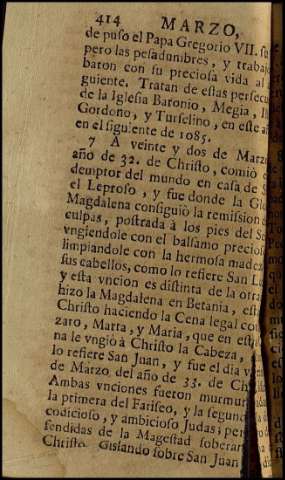 414 MARZO,
de puso el Papa Gregorio VII.
pero las pesadumbres, y trabaj
baron con su preciosa vida al
guiente. Tratan de estas persecu
de la Iglesia Baronio, Megia,
Gordono, y Turselino, en este
en el siguiente de 1085.
7 A veinte y dos de Marz
año de 32. de Christo, comiò
demptor del mundo en casa de
el Leproso, y fue donde la Glo
Magdalena consiguiò la remission
culpas, postrada à los pies del
vngiendole con el balsamo precios
limpiandole con la hermosa madex
sus cabellos, como lo refiere San Lu
y esta vncion es distinta de la otra
hizo la Magdalena en Betania, est
Christo haciendo la Cena legal con
zaro, Marta, y Maria, que en est
na le vngiò à Christo la Cabeza,
lo refiere San Juan, y fue el dia
de Marzo del año de 33. de Ch
Ambas vnciones fueron murmur
la primera del Fariseo, y la segun
codicioso, y ambicioso Judas; pe
fendidas de la Magestad soberan
Christo. Gislando sobre San Juan